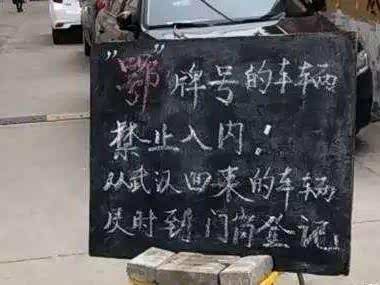 "鄂"牌号的车辆
禁止入内!
从武汉回来的车辆
及时到门岗登记